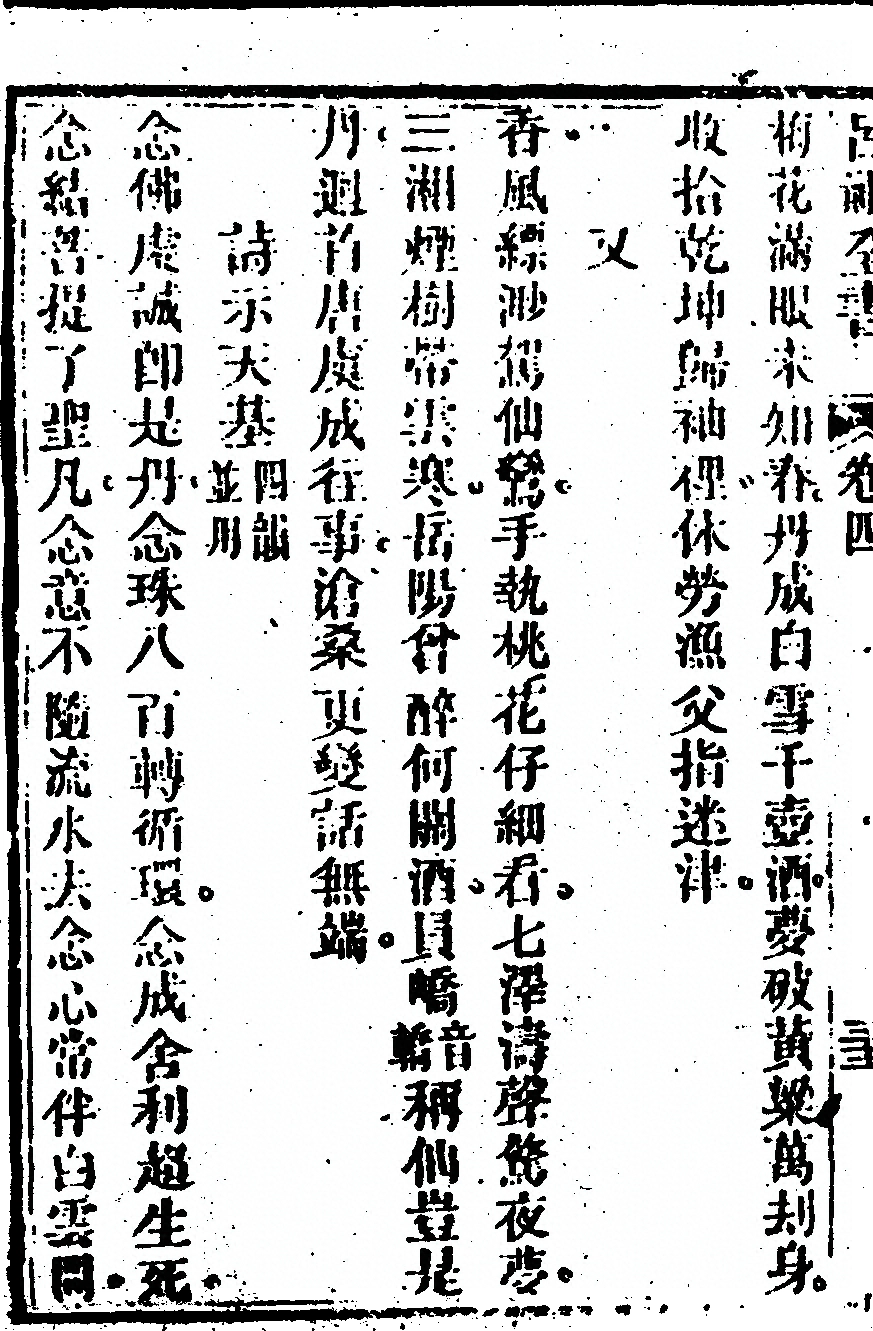 呂祖全書 卷四 三
梅花滿眼未知春丹成白雪千壺酒夢破黃粱萬刦身
收拾乾坤歸袖裡休勞漁父指迷津
又
香風縹渺駕仙鸞手執桃花仔細看七澤濤聲驚夜夢
三湘煙樹帶雲寒岳陽曾醉何關酒員嶠音轎稱仙豈是
丹迴首唐虞成往事滄桑更變話無端
詩示天基四韻並用
念佛虔誠卽是丹念珠八百轉循環念成舍利超生死
念結菩提了聖凡念意不隨流水去念心常伴白雲閒